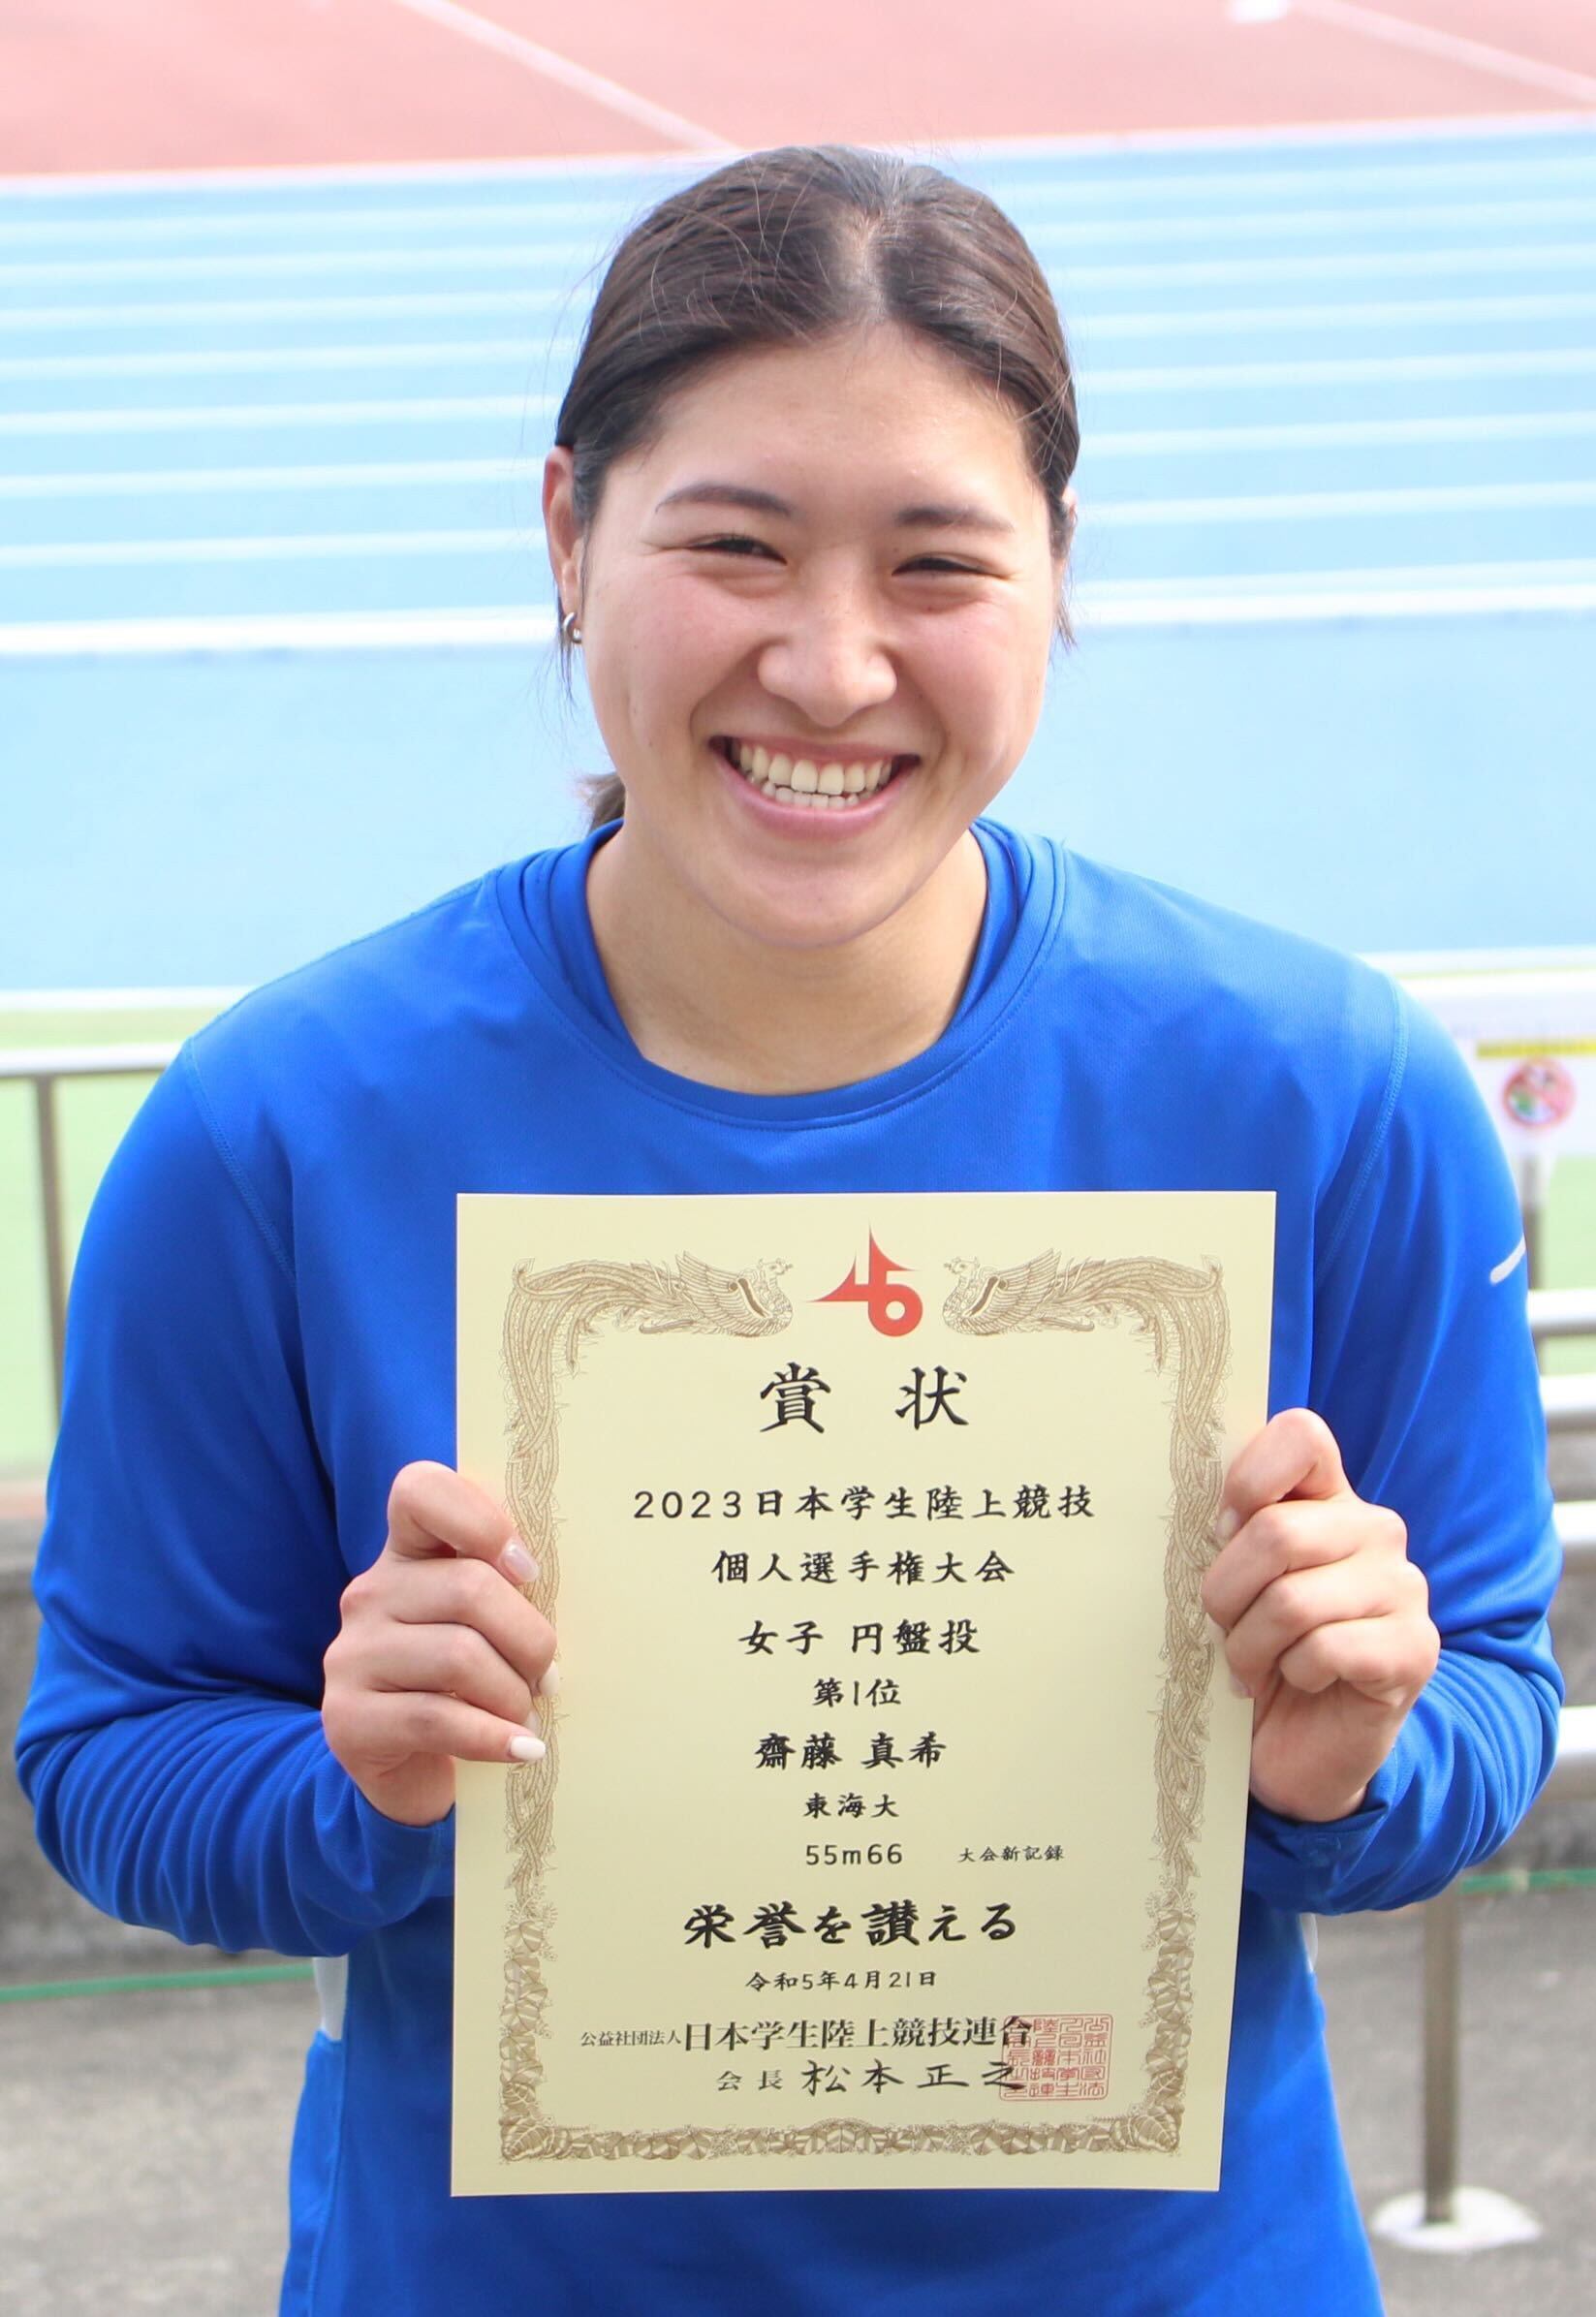 賞状
2023日本学生陸上競技
個人選手権大会
女子 円盤投
第1位
齋藤 真希
東海大
55m66 大会新記録
栄誉を讃える
令和5年4月21日
公益社団法人日本学生陸上競技連合
会長 松本正之